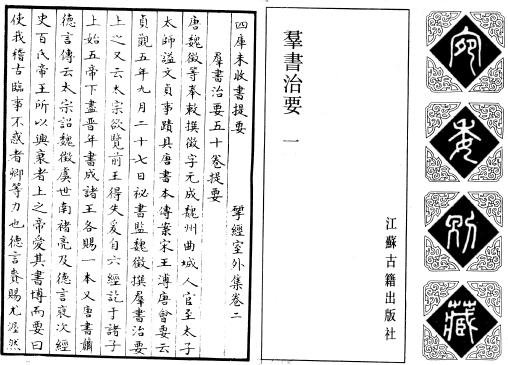 宛委別藏
羣書治要 一
江蘇古籍出版社
四庫未收書提要 揅經室外集卷二
羣書治要五十卷提要
唐魏徵等奉敕撰徵字元成魏州曲城人官至太子
太師謚文貞事蹟具唐書本傳案宋王溥唐會要云
貞觀五年九月二十七日祕書監魏徵撰羣書治要
上之又云太宗欲覽前王得失爰自六經訖于諸子
上始五帝下盡晉年書成諸王各賜一本又唐書蕭
德言傳云太宗詔魏徵虞世南褚亮及德言裒次經
史百氏帝王所以興衰者上之帝愛其書博而要曰
使我稽古臨事不惑者卿等力也德言賚賜尤渥然